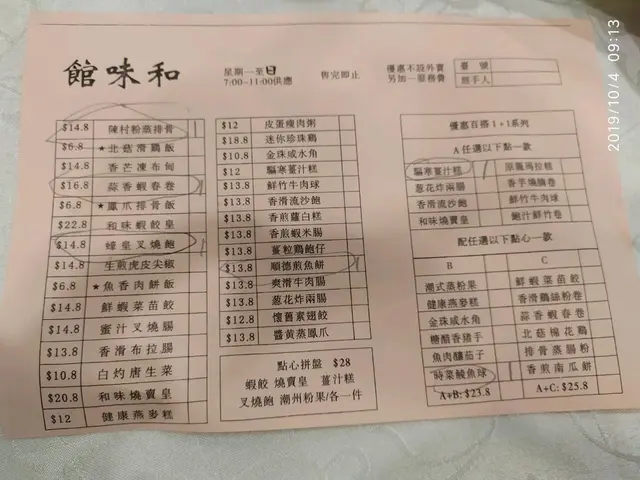 和味館
星期一至日
7:00-11:00供應
售完即止
優惠不設外賣
另加一服務費
臺號
經手人
$14.8 陳村粉蒸排骨 1
$6.8 ★北菇滑鷄飯
$14.8 香芒凍布甸
$16.8 蒜香蝦春卷 1
$6.8 ★鳳爪排骨飯
$22.8 和味蝦餃皇
$14.8 蜂皇叉燒飽 1
$14.8 生煎虎皮尖椒
$6.8 ★魚香肉餅飯
$14.8 鮮蝦菜苗餃
$14.8 蜜汁叉燒腸
$13.8 香滑布拉腸
$10.8 白灼唐生菜
$20.8 和味燒賣皇
$12 健康燕麥糕
$12 皮蛋瘦肉粥
$18.8 迷你珍珠鷄
$10.8 金珠咸水角
$12 驅寒薑汁糕
$13.8 鮮竹牛肉球
$13.8 香滑流沙飽
$13.8 香煎蘿白糕
$13.8 香煎蝦米腸
$13.8 薑粒鷄飽仔
$13.8 順德煎魚餅 1
$13.8 爽滑牛肉腸
$13.8 葱花炸兩腸
$12.8 懷舊素翅餃
$13.8 醬黃蒸鳳爪
點心拼盤 $28
蝦餃 燒賣皇 薑汁糕
叉燒飽 潮州粉果/各一件
優惠百搭1+1系列
A 任選以下點一款
驅寒薑汁糕 1 原籠馬拉糕
葱花炸兩腸 香芋燒腩卷
香滑流沙飽 鮮竹牛肉球
和味燒賣皇 鮑汁鮮竹卷
配任選以下點心一款
B C
潮式蒸粉果 鮮蝦菜苗餃
健康燕麥糕 香滑鷄絲粉卷
金珠咸水角 蒜香蝦春卷
糖醋香豬手 北菇棉花鷄
魚肉釀茄子 排骨蒸腸粉
時菜鯪魚球 1 香煎南瓜餅
A+B: $23.8 A+C: $25.8
2019/10/4 09:13